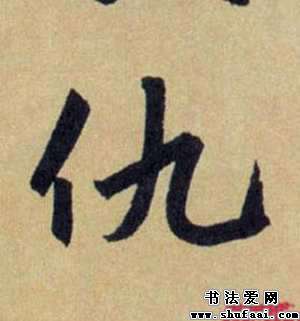 仇
书法爱网
www.shufaai.com